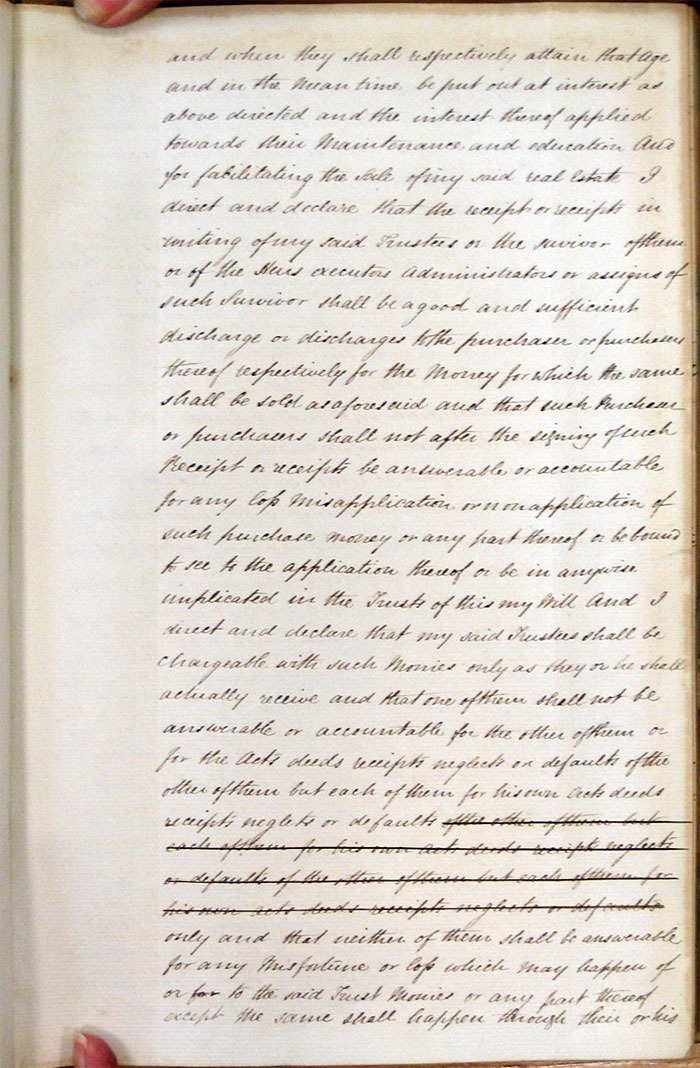 and when they shall respectively attain that age
and in the mean time be put out at interest as
above directed and the interest thereof applied
towards their Maintenance and education And
for facilitating the Sale of my said real Estate I
direct and declare that the receipt or receipts in
writing of my said Trustees or the survivor of them
or of the Heirs executors Administrators or assigns of
such Survivor shall be a good and sufficient
discharge or discharges to the purchaser or purchasers
thereof respectively for the Money for which the same
shall be sold as aforesaid and that such Purchaser
or purchasers shall not after the signing of such
Receipt or receipts be answerable or accountable
for any loss misapplication or nonapplication of
such purchase money or any part thereof or be bound
to see to the application thereof or be in anywise
implicated in the Trusts of this my Will And I
direct and declare that my said Trustees shall be
chargeable with such Monies only as they or he shall
actually receive and that one of them shall not be
answerable or accountable for the other of them or
for the Acts deeds receipts neglects or defaults of the
other of them but each of them for his own Acts deeds
receipts neglets or defaults of the other of them but
each of them for his own acts deeds receipts neglects
or defaults of the other of them but each of them for
his own acts deeds receipts neglects or defaults
only and that neither of them shall be answerable
for any Misfortune or loss which may happen of
or for to the said Trust Monies or any part thereof
except the same shall happen through their or his